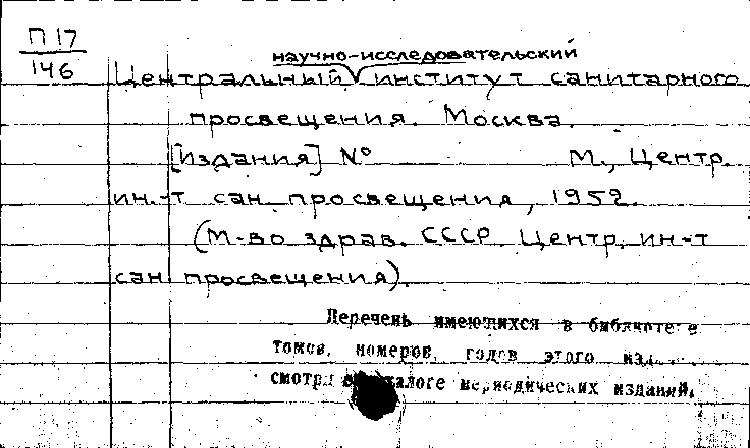 П 17
146
научно-исследовательский
Центральный институт санитарного
просвещения. Москва.
[Издания] № М., Центр.
ин.-т сан. просвещения, 1952.
(М-во здрав. СССР. Центр. ин-т
сан просвещения).
Перечень имеющихся в библиотеке
томов, номеров, годов этого
смотри каталоге периодических изданий.